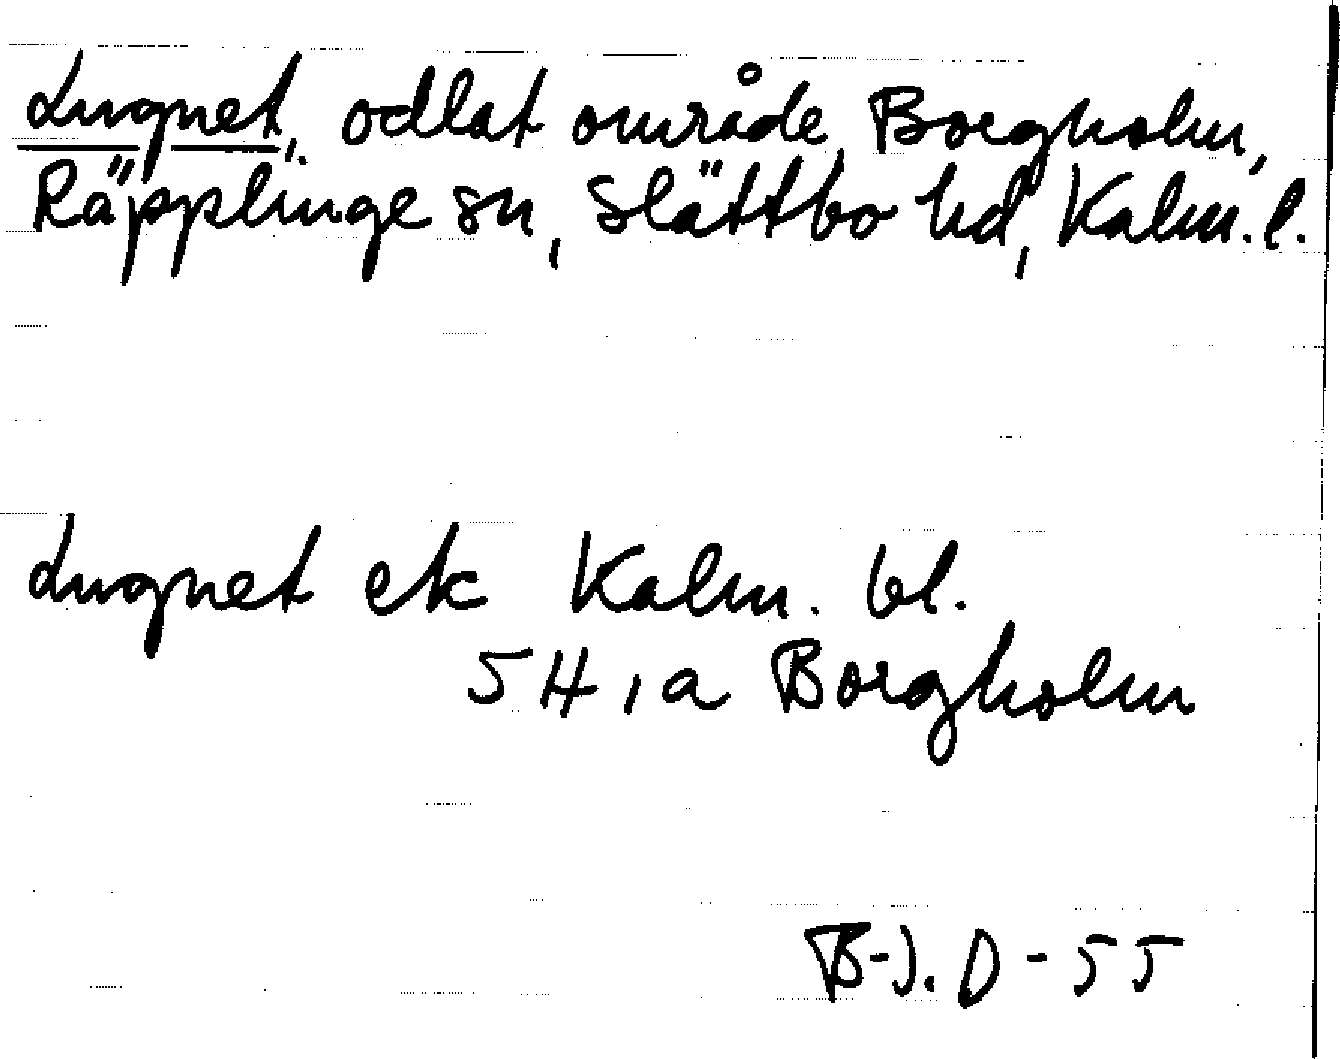 Lugnet, odlat område, Borgholm,
Räpplinge sn, Slättbo hd, Kalm. l.
Lugnet ek Kalm. bl.
5H 1a Borgholm
B-J. D-55